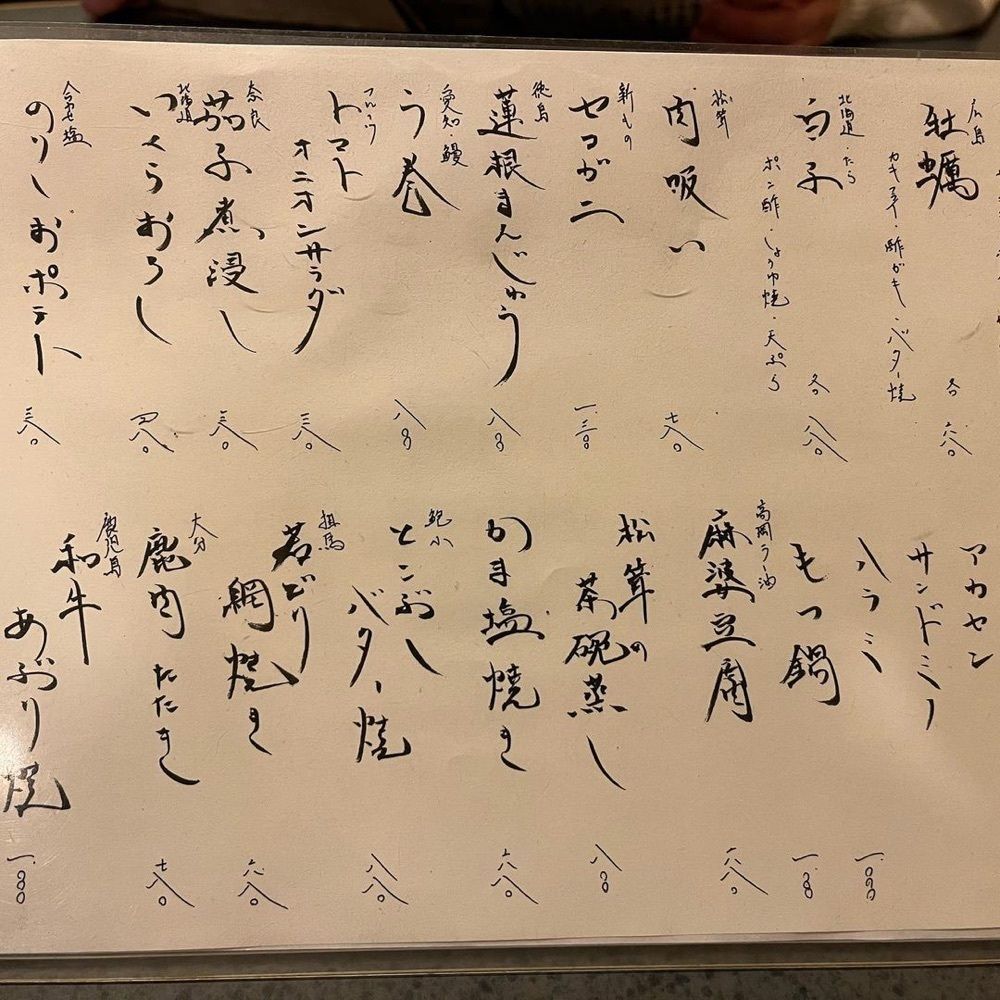 広島
牡蠣
カキフライ・酢ガキ・バター焼
各 六八〇
北海道・たら
白子
ポン酢・しょうゆ焼・天ぷら
各 八八〇
松茸
肉吸い
七八〇
新もの
セコガニ
一、三〇〇
徳島
蓮根まんじゅう
八〇〇
愛知・鰻
う巻
八〇〇
フルーツ
トマト
オニオンサラダ
三八〇
奈良
茄子煮浸し
三八〇
北海道
いくらおろし
四八〇
合わせ塩
のりしおポテト
三八〇
アカセン
サンドミノ
ハラミ
一、〇〇〇
もつ鍋
一、〇〇〇
高岡ラー油
麻婆豆腐
六八〇
松茸の
茶碗蒸し
八八〇
かま塩焼き
六八〇
鮑小
とこぶし
バター焼
八八〇
但馬
若どり
網焼き
六八〇
大分
鹿肉たたき
七八〇
鹿児島
和牛
あぶり焼
一、〇〇〇